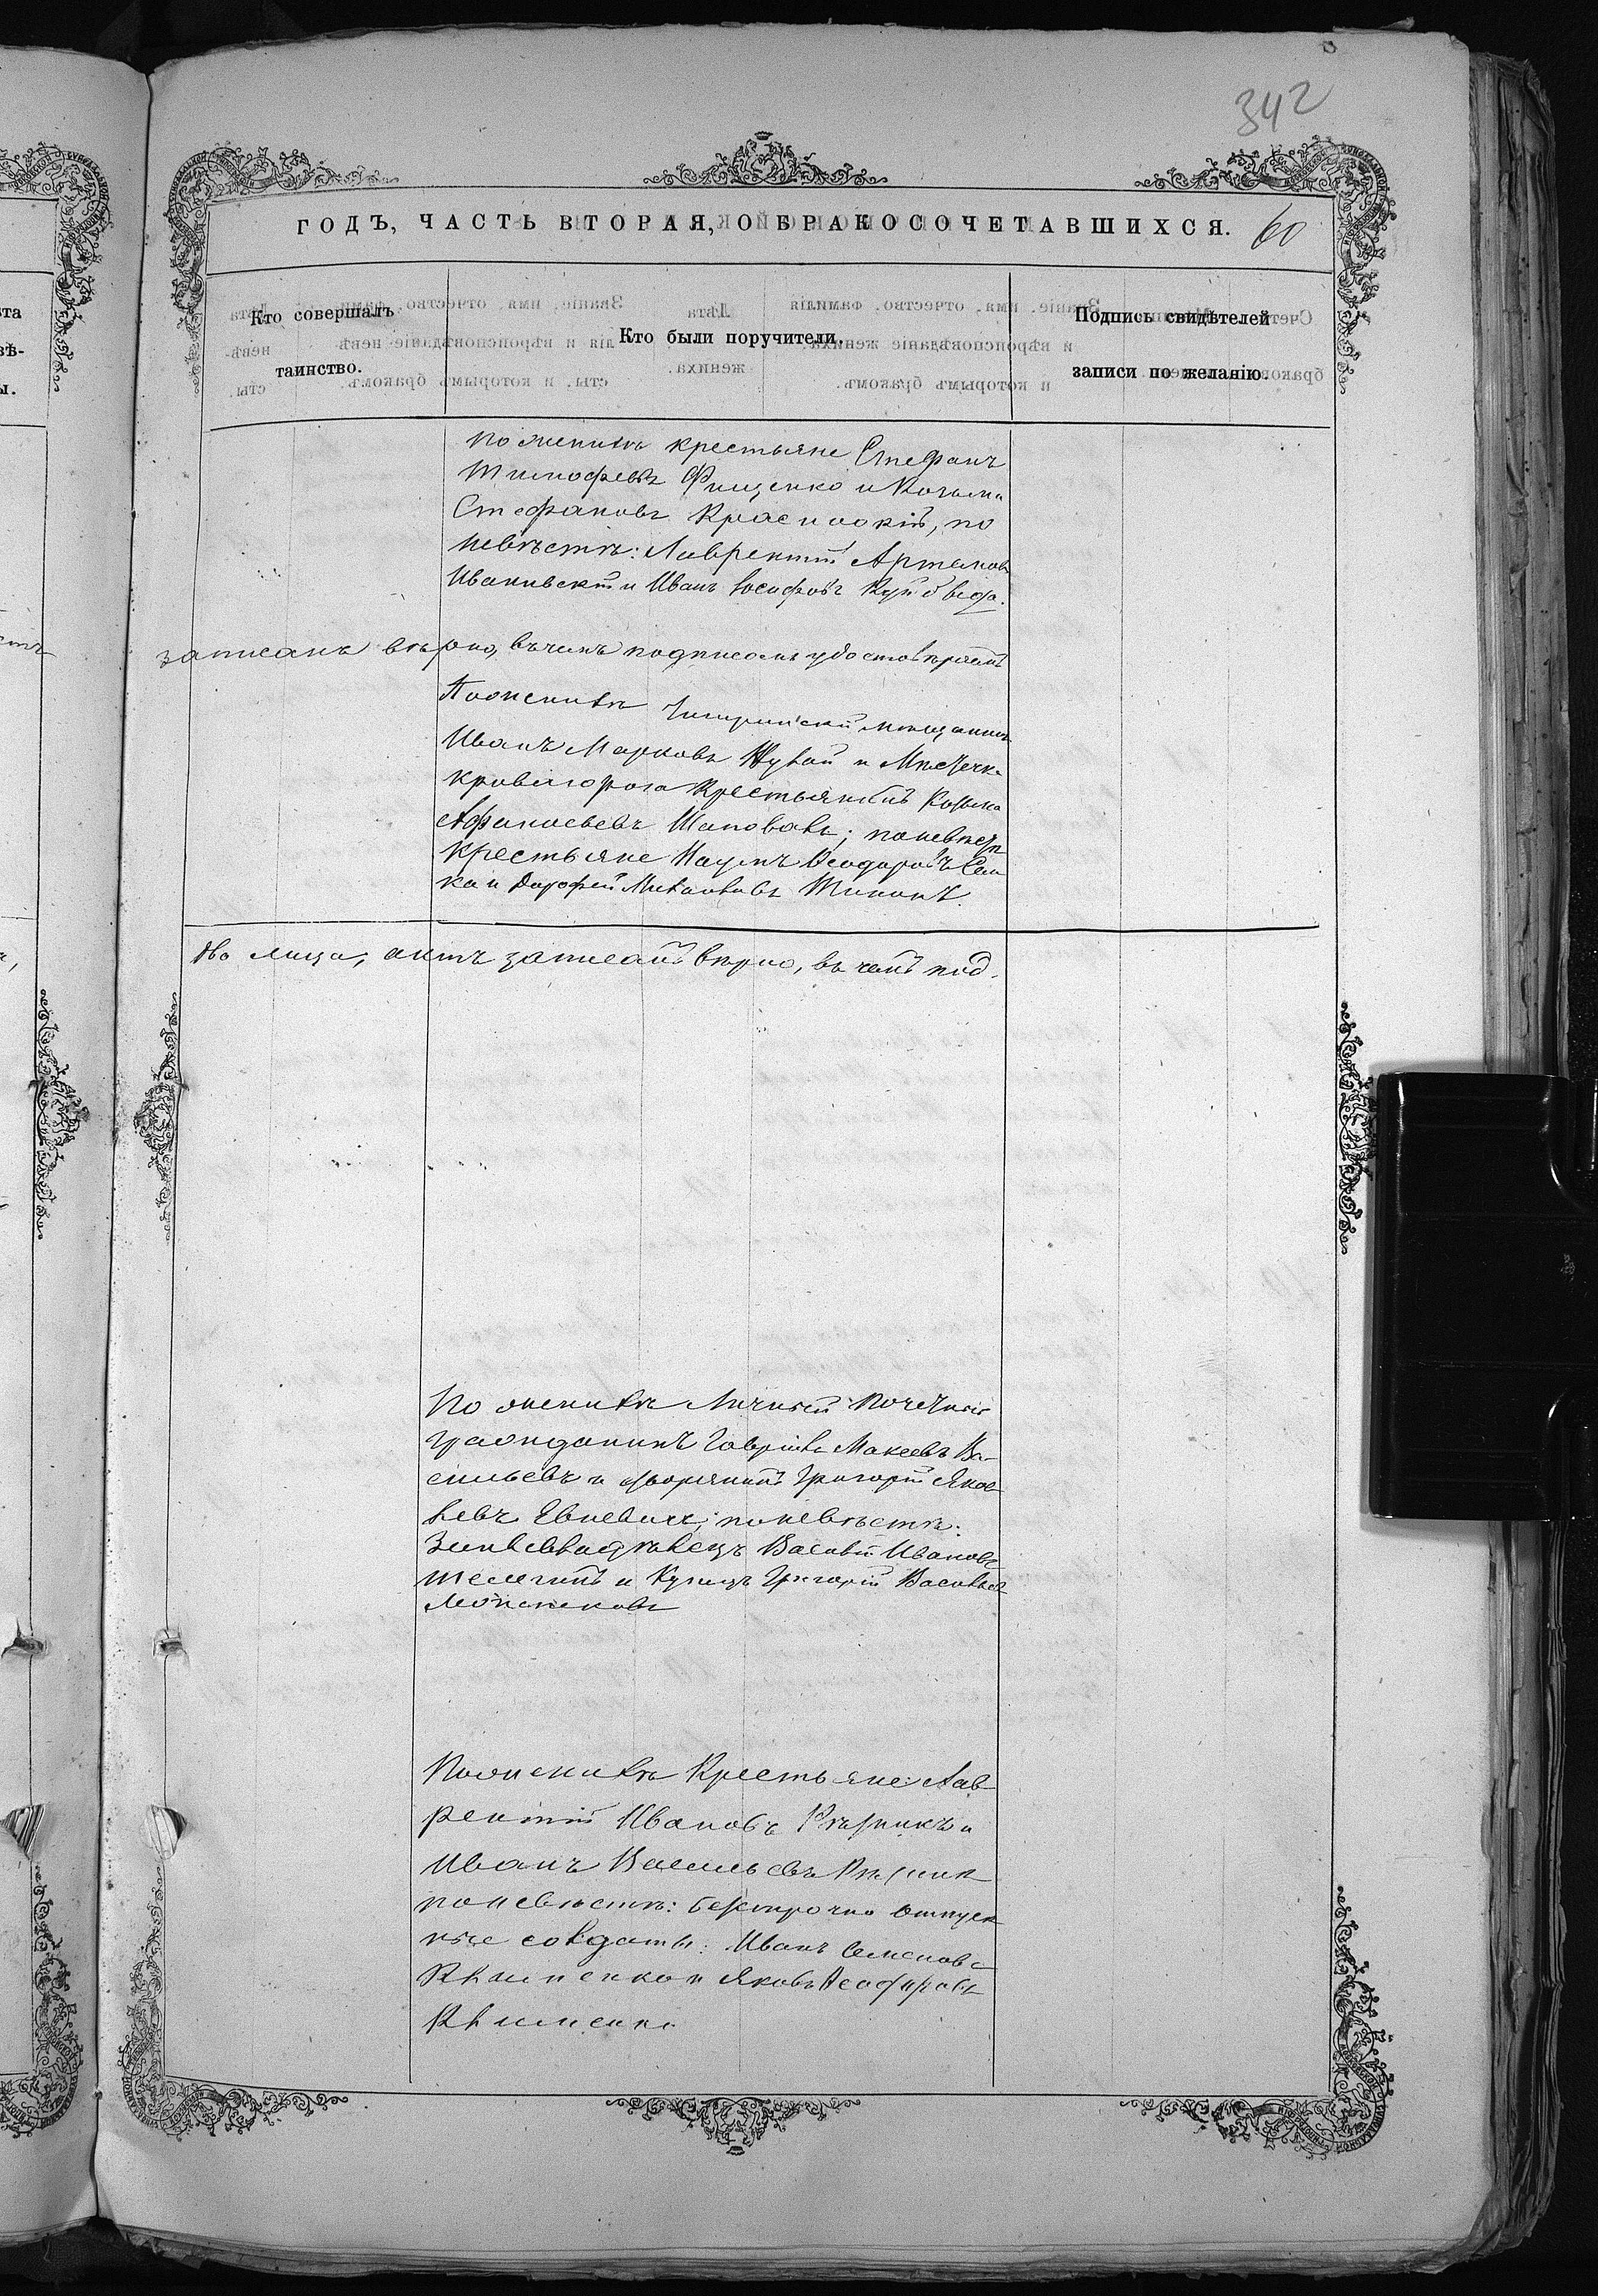 342
ГОДЪ, ЧАСТЬ ВТОРАЯ, О БРАКОСОЧЕТАВШИХСЯ. 60
Кто совершалъ
таинство.
Кто были поручители.
Подпись свидѣтелей
записи по желанію.
по женихѣ крестьяне Стефанъ
Тимофеевъ Фищенко и Козьма
Стефановъ Красноокій, по
невѣстѣ: Лаврентій Артемовъ
и Иванъ Іосифовъ
записанъ вѣрно, въ чемъ подписомъ удостовѣряемъ
По женихѣ мѣщанинъ
Иванъ Марковъ и Мѣстечка
Криваго рога Крестьянинъ Козьма
Афанасьевъ Шаповалъ; по невѣстѣ
Крестьяне Наумъ Ѳеодоровъ
ка и Дорофей Михайловъ
два лица, актъ записанъ вѣрно, въ чемъ под.
По женихѣ Личный Почетный
гражданинъ Гавріилъ Макеевъ Ва-
сильевъ и дворянинъ Григорій Яков-
левъ по невѣстѣ:
Землевладѣлецъ Василій Ивановъ
Шелегинъ и Купецъ Григорій Васильевъ
По женихѣ Крестьяне: Лав-
рентій Ивановъ Рѣзникъ и
Иванъ Васильевъ Рѣзникъ
по невѣстѣ: безсрочно отпуск
ные солдаты: Иванъ Семеновъ
Клименко и Яковъ Ѳеодоровъ
Клименко